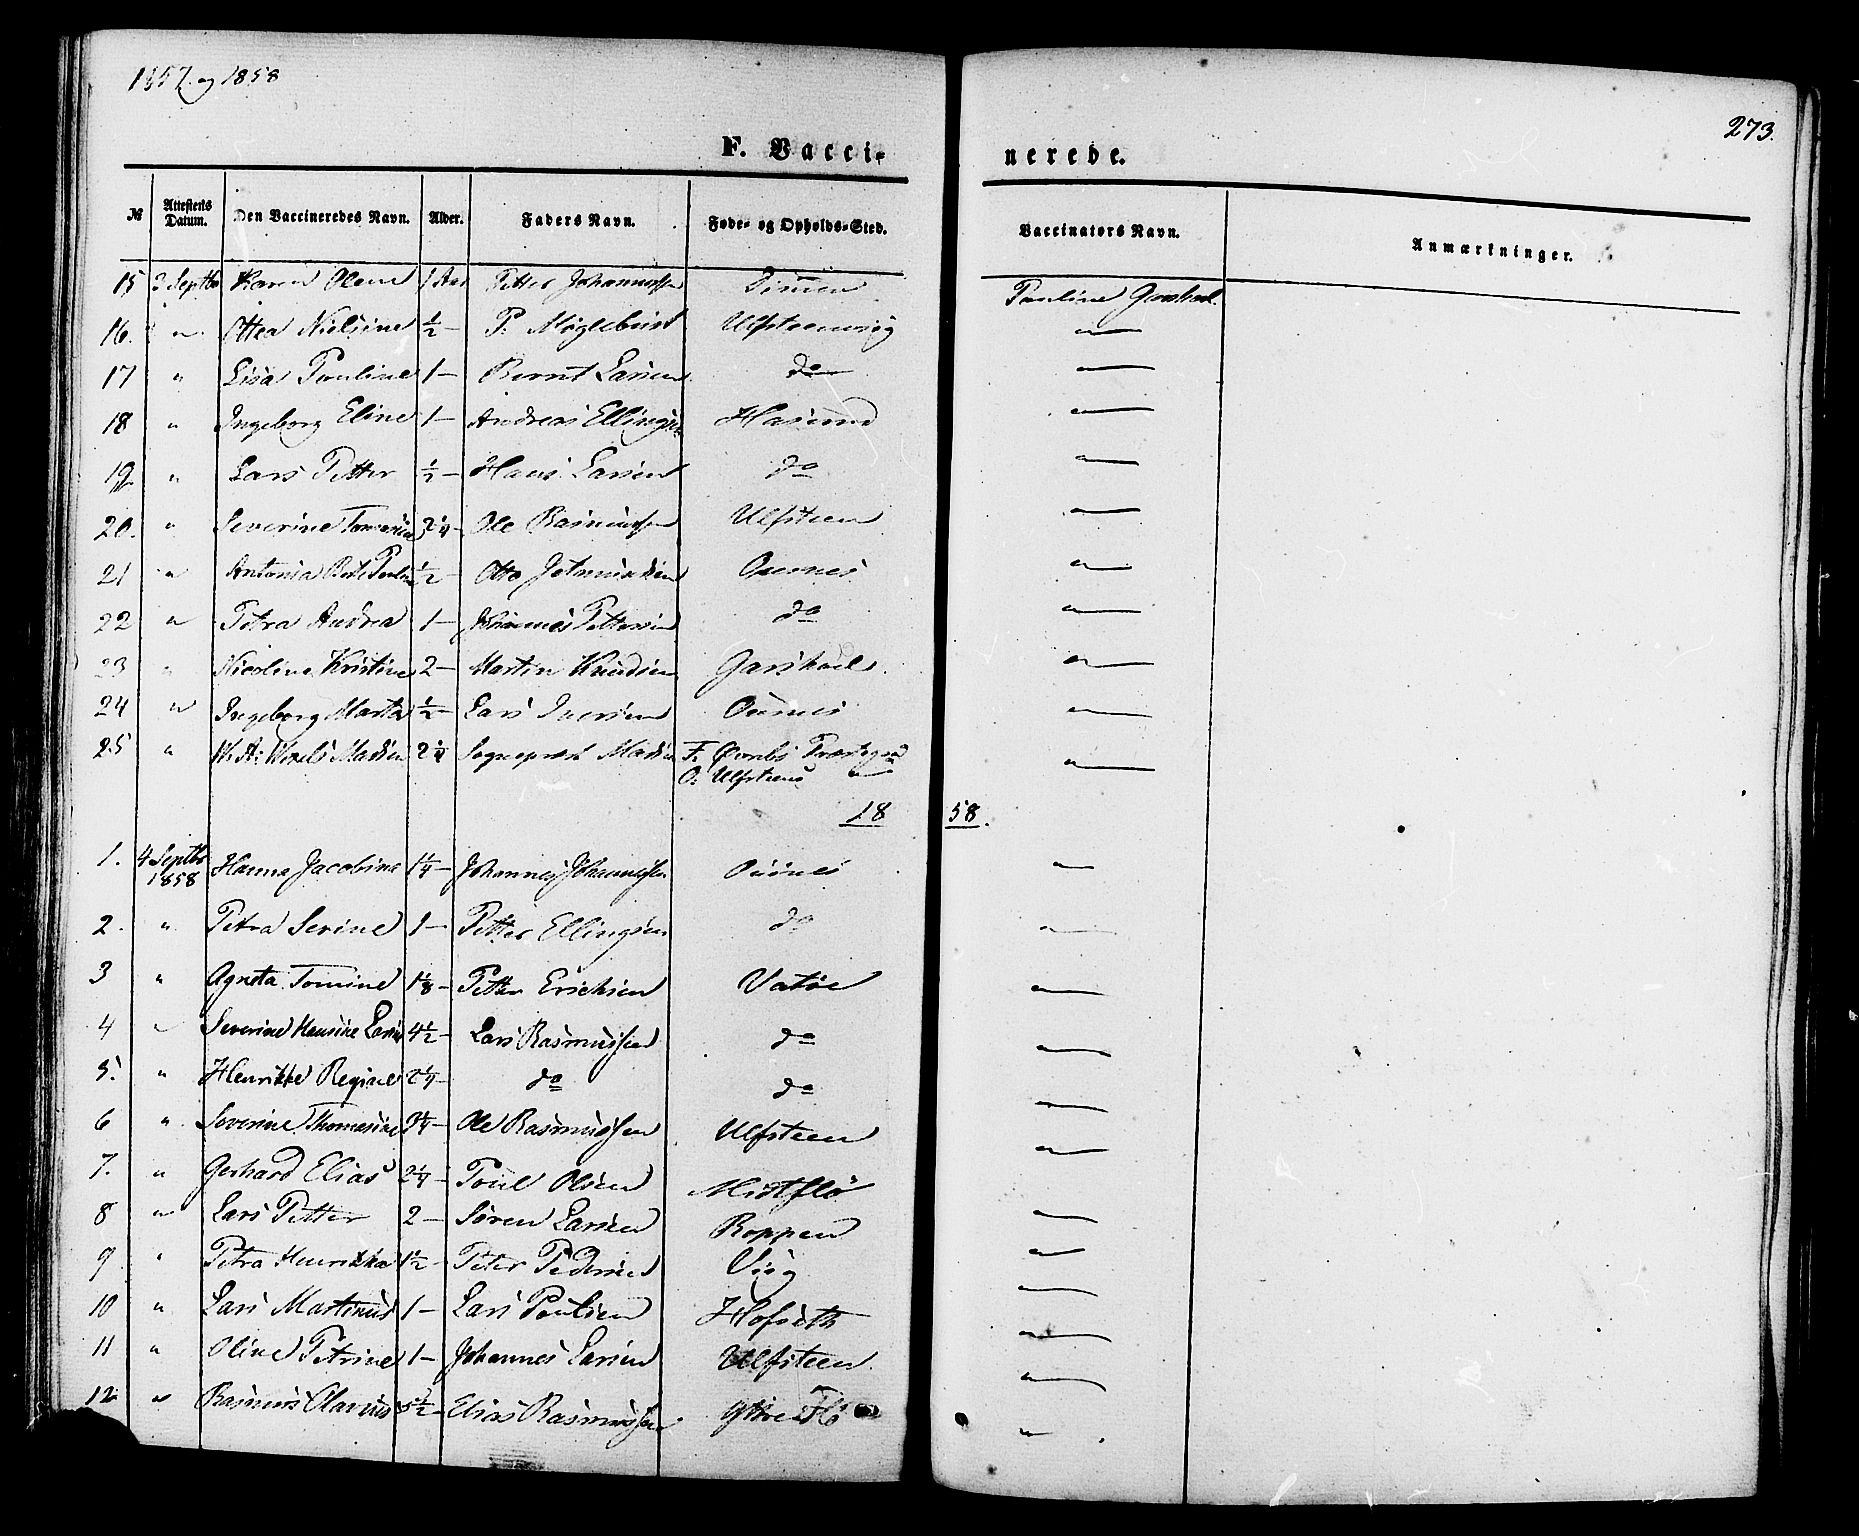 1857. og 1858
273.
F. Vacci-
nerede.
№ Attesteets Datum. Den Vaccineredes Navn. Alder. Faders Navn. Føde- og Opholds-Sted. Vaccinators Navn. Anmærkninger.
15 3 Septbr Karen Olene 1 Aar Petter Johannessen Dimmen Pauline
16. " Ottea Nielsine ½ — P. Møglebust Ulfsteenvig " —
17 " Lisa Pauline 1 — Bernt Larsen do " —
18 " Ingeborg Eline 1 — Andreas Ellingsen Hasund " —
19 " Lars Petter ½ — Hans Larsen do " —
20. " Severine 2¼ — Ole Rasmussen Ulfsteen " —
21 " Antonia ½ — Otto Osnes " —
22 " Petra Andrea 1 — Johannes Pettersen do " —
23 " Nicoline Kristine 2 — Martin Knudsen Garshoel " —
24 " Ingeborg Marta ½ — Lars Iversen Osnes " —
25 " Wexels Madsen 2¼ Sognepræst Madsen F. Præstegd " —
O. Ulfsteens "
18 58.
1. 4 Septbr 1858 Hanna Jacobine 1¼ — Johannes Johannessen Osnes " —
2. " Petra Serine 1 — Petter Ellingsen do " —
3 " Agneta Tomine 1⅛ — Petter Erichsen Vatøe " —
4 " Severine Hansine 4½ — Lars Rasmussen do " —
5. " Henrikke Regine 2¼ — do do " —
6 " Severine Thomasine 3¼ — Ole Rasmussen Ulfsteen " —
7. " Gerhard Elias 2¼ — Poul Olsen Midtflø " —
8 " Lars Petter 2 — Søren Larsen Roppen " —
9 " Petra Henrikka 1½ — Peter Pedersen Viig " —
10 " Lars Martinus 1 — Lars Poulsen Hofseth " —
11 " Oline Petrine 1 — Johannes Larsen Ulfsteen " —
12 " Rasmus Olavius 5½ — Elias Rasmussen Yttre Flø "